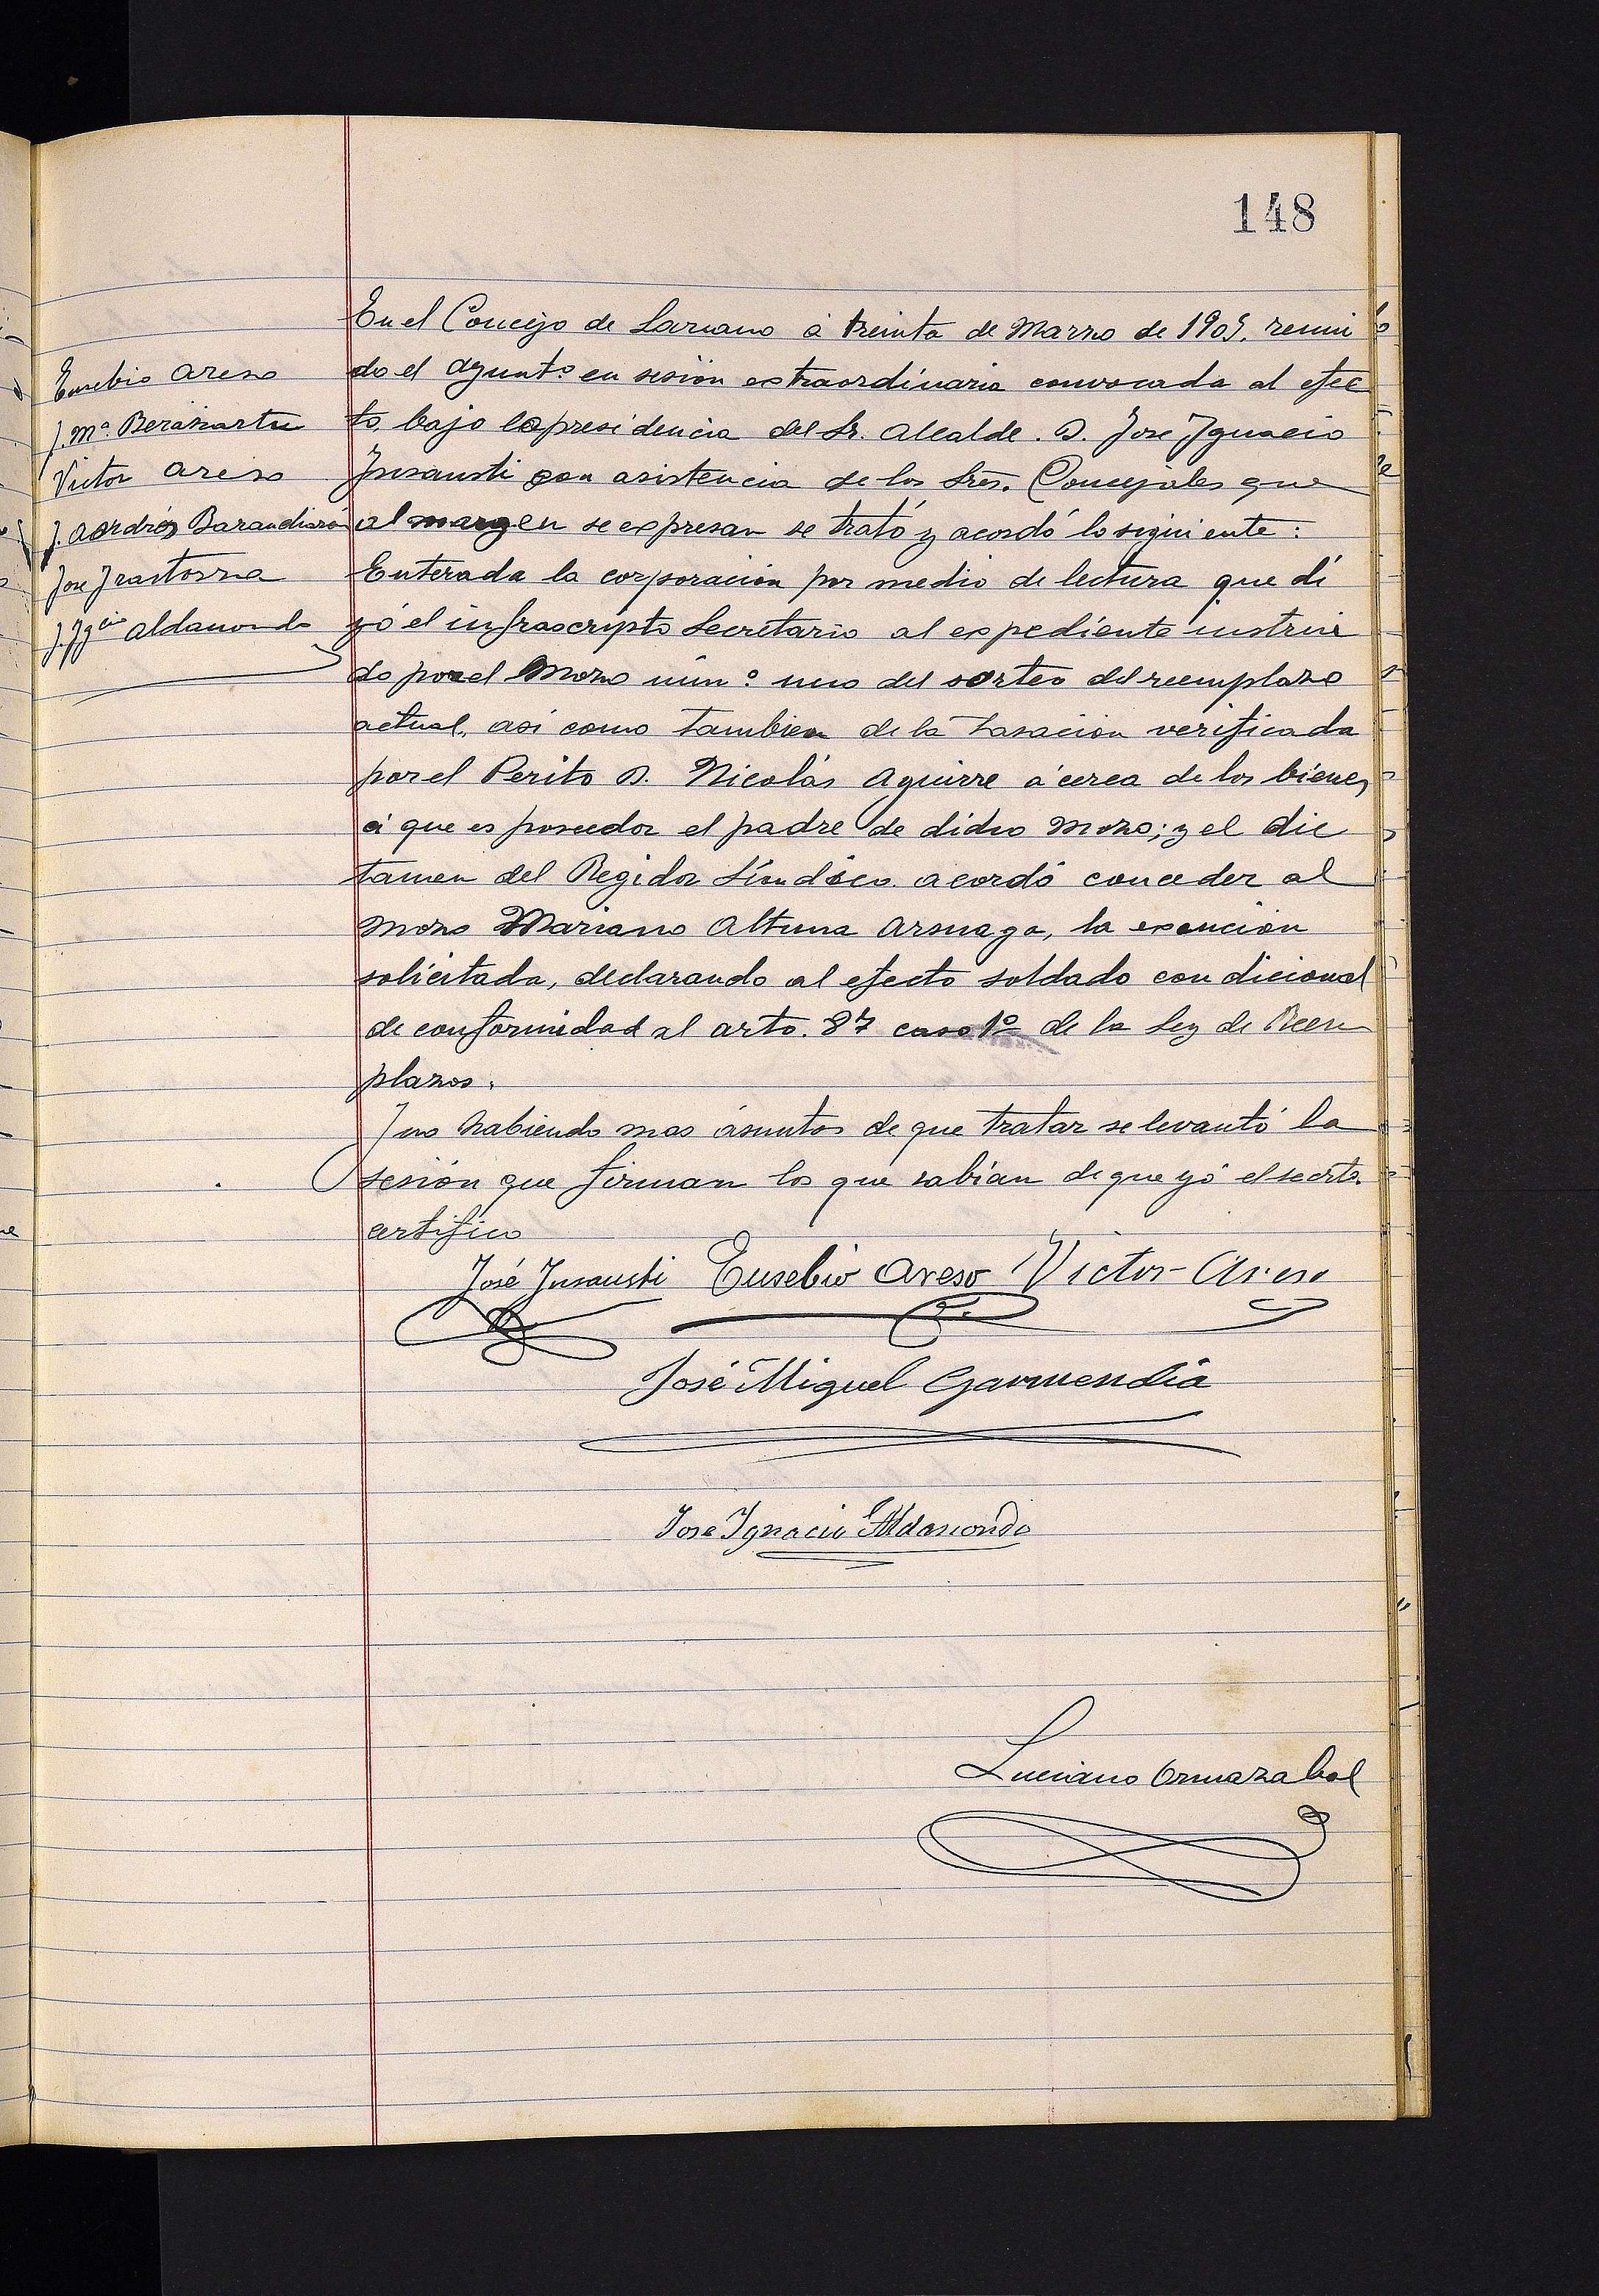 148
En el Concejo de Larrano á treinta de Marzo de 1905, reuni
do el Ayuntº en sesión extraordinaria convocada al efec
to, bajo la presidencia del Sr. Alcalde. D. José Ignacio
Insausti con asistencia de los Sres. Concejales que
al margen se expresan se trató y acordó lo siguiente:
Enterada la corporación por medio de lectura que di
yó el infrascripto Secretario al expediente instrui
do por el Mozo núnº uno del sorteo del reemplazo
actual, asi como tambien de la tasación verificada
por el Perito D. Nicolás Aguirre ácerca de los bienes
á que es poseedor el padre de dicho mozo; y el dic
tamen del Regidor Síndico acordó conceder al
mozo Mariano Altuna Arsuaga, la exención
solicitada, declarando al efecto soldado condicional
de conformidad al arto. 87 caso 1º de la Ley de Reem
plazos.
Y no habiendo mas ásuntos de que tratar se levantó la
sesión que firman los que sabían de que yó el secrto.
certifico
Eusebio Areso
J. Mª Berasartu
Victor Areso
J. Andrés Barandiarán
José Irastorza
J. Ygcio Aldanondo
José Insausti Eusebio Areso Victor Areso
José Miguel Garmendia
José Ignacio Aldanondo
Luciano Ormazabal